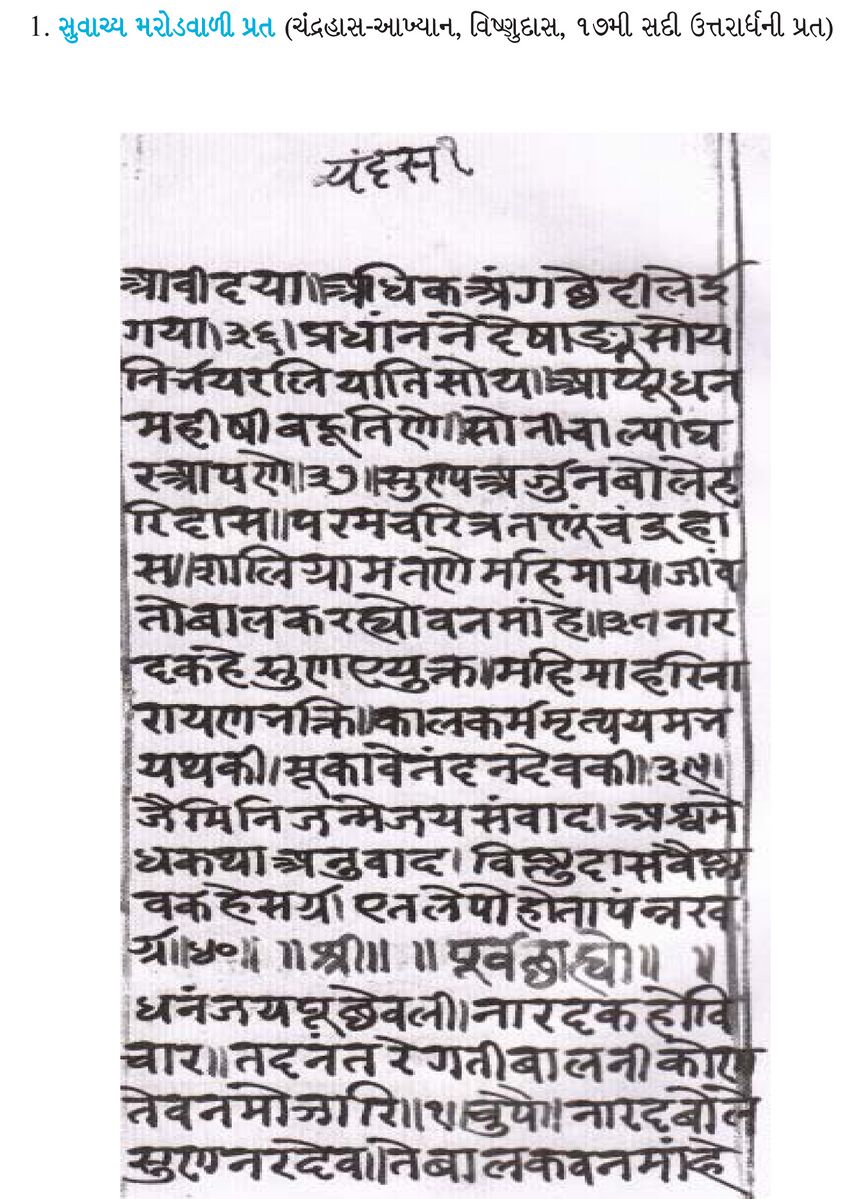 1. સુવાચ્ય મરોડવાળી પ્રત (ચંદ્રહાસ-આખ્યાન, વિષ્ણુદાસ, ૧૭મી સદી ઉત્તરાર્ધની પ્રત)
आवी दया॥ अधिक अंग छेदी लेई
गया।३६। प्रधांनने देषाड्यू सोय
निर्भय रलियाति सोय॥ आप्यूं धन
महीषी बहू तिणे॥ सो नीचाल्या घ
र आपणे॥३७॥ सुण्य अर्जुन बोले ह
रिदास॥ परम चरित्र तणूं चंद्रहा
स॥ शालिग्राम तणे महिमाय। जीव
तो बालक रह्यो वन मांहे॥३८ नार
द कहे सुण एयुक्त॥ महिमा हरि ना
रायण भक्ति॥ काल कर्म मृत्य यम भ
य थकी। मूकावे नंदन देवकी॥३९।
जैमिनि जन्मेजय संवाद। अश्वमे
ध कथा अनुवाद। विष्णुदास वैष्ण
व कहे सर्ग। एतले पोहोता पं
॥४०॥ ॥श्री॥ ॥पूर्व
धनंजय पूछे वली॥ नारद कहो वि
चार॥ तदनंतरे गती बालनी कोण
ते वन मोझारि॥१॥ चुपै॥ नारद बोले
सुण नरदेव॥ ते बालक वन मांहे